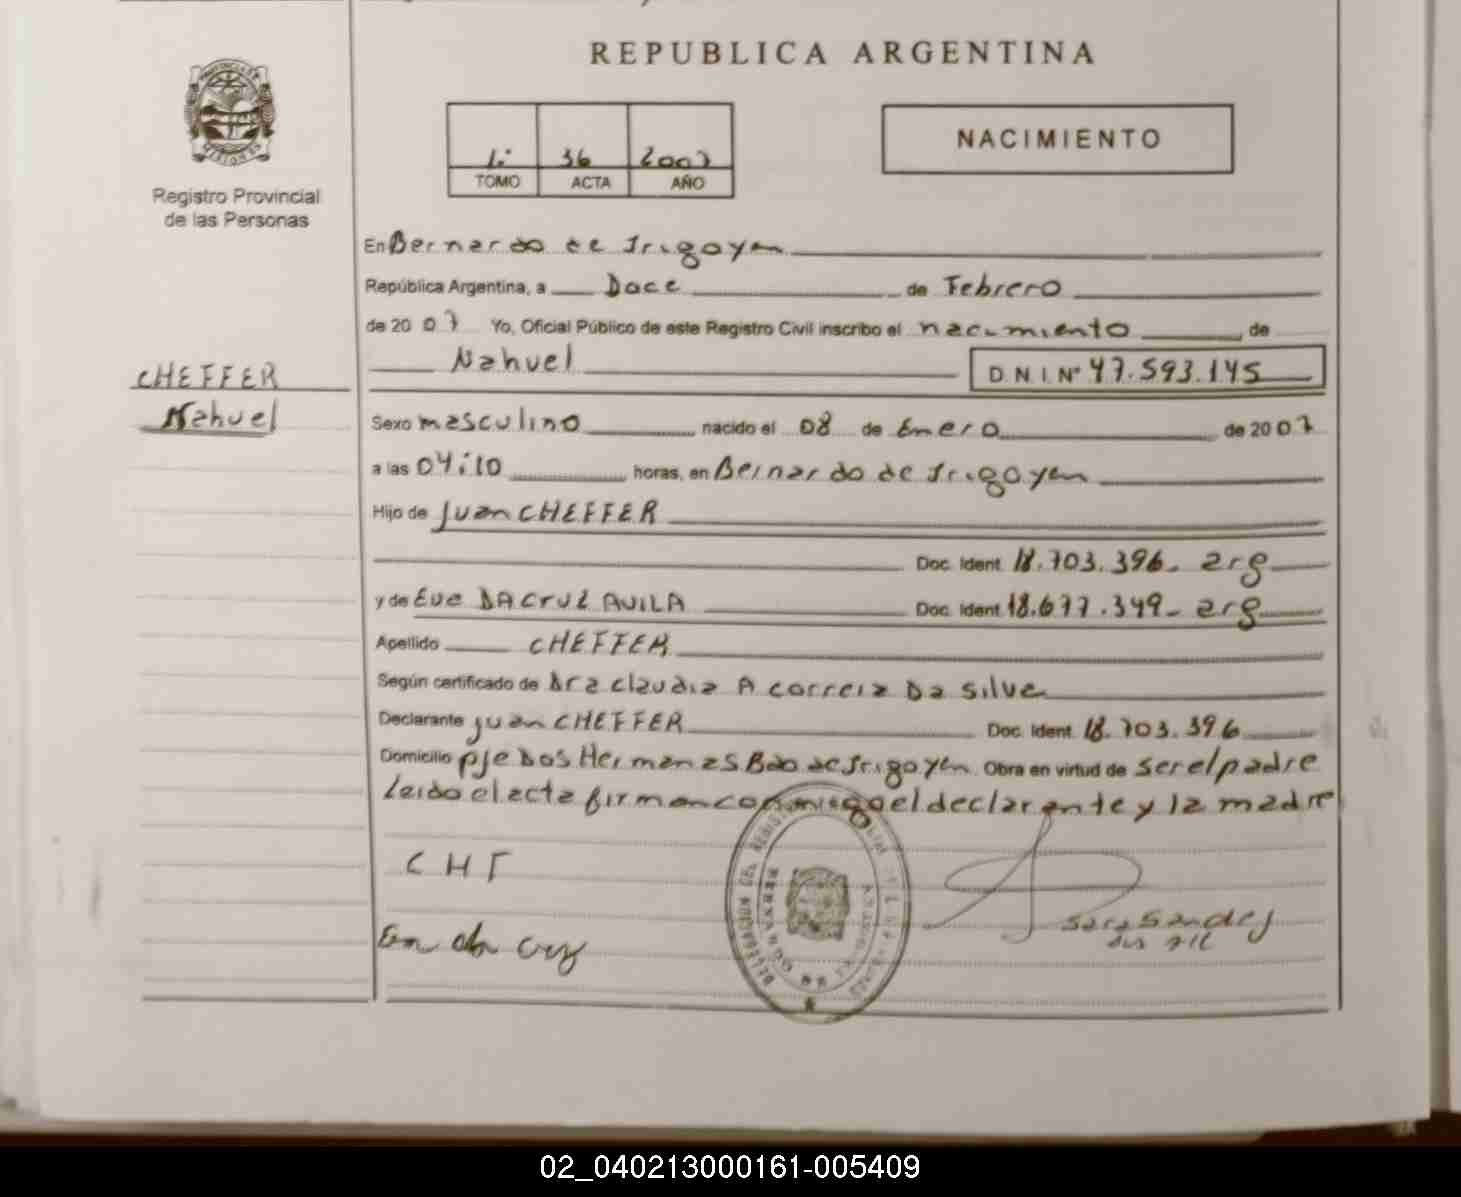 REPUBLICA ARGENTINA
PROVINCIA DE
MISIONES
Registro Provincial
de las Personas
1º 36 2007
TOMO ACTA AÑO
NACIMIENTO
En Bernardo de Irigoyen
República Argentina, a Doce de Febrero
de 20 07 Yo, Oficial Público de este Registro Civil inscribo el nacimiento de
Nahuel D.N.I. Nº 47.593.145
CHEFFER
Nahuel
Sexo masculino nacido el 08 de Enero de 20 07
a las 04:10 horas, en Bernardo de Irigoyen
Hijo de Juan CHEFFER
Doc. Ident. 18.703.396- arg
y de Eve DA CruZ AVILA Doc. Ident. 18.677.349- arg
Apellido CHEFFER
Según certificado de Dra claudia A correia Da silva
Declarante juan CHEFFER Doc. Ident. 18.703.396
Domicilio pje Dos Hermanas Bdo de Irigoyen. Obra en virtud de ser el padre
Leido el acta firman conmigo el declarante y la madre
CHF
DELEGACION DEL REGISTRO
BERNARDO DE
02_040213000161-005409